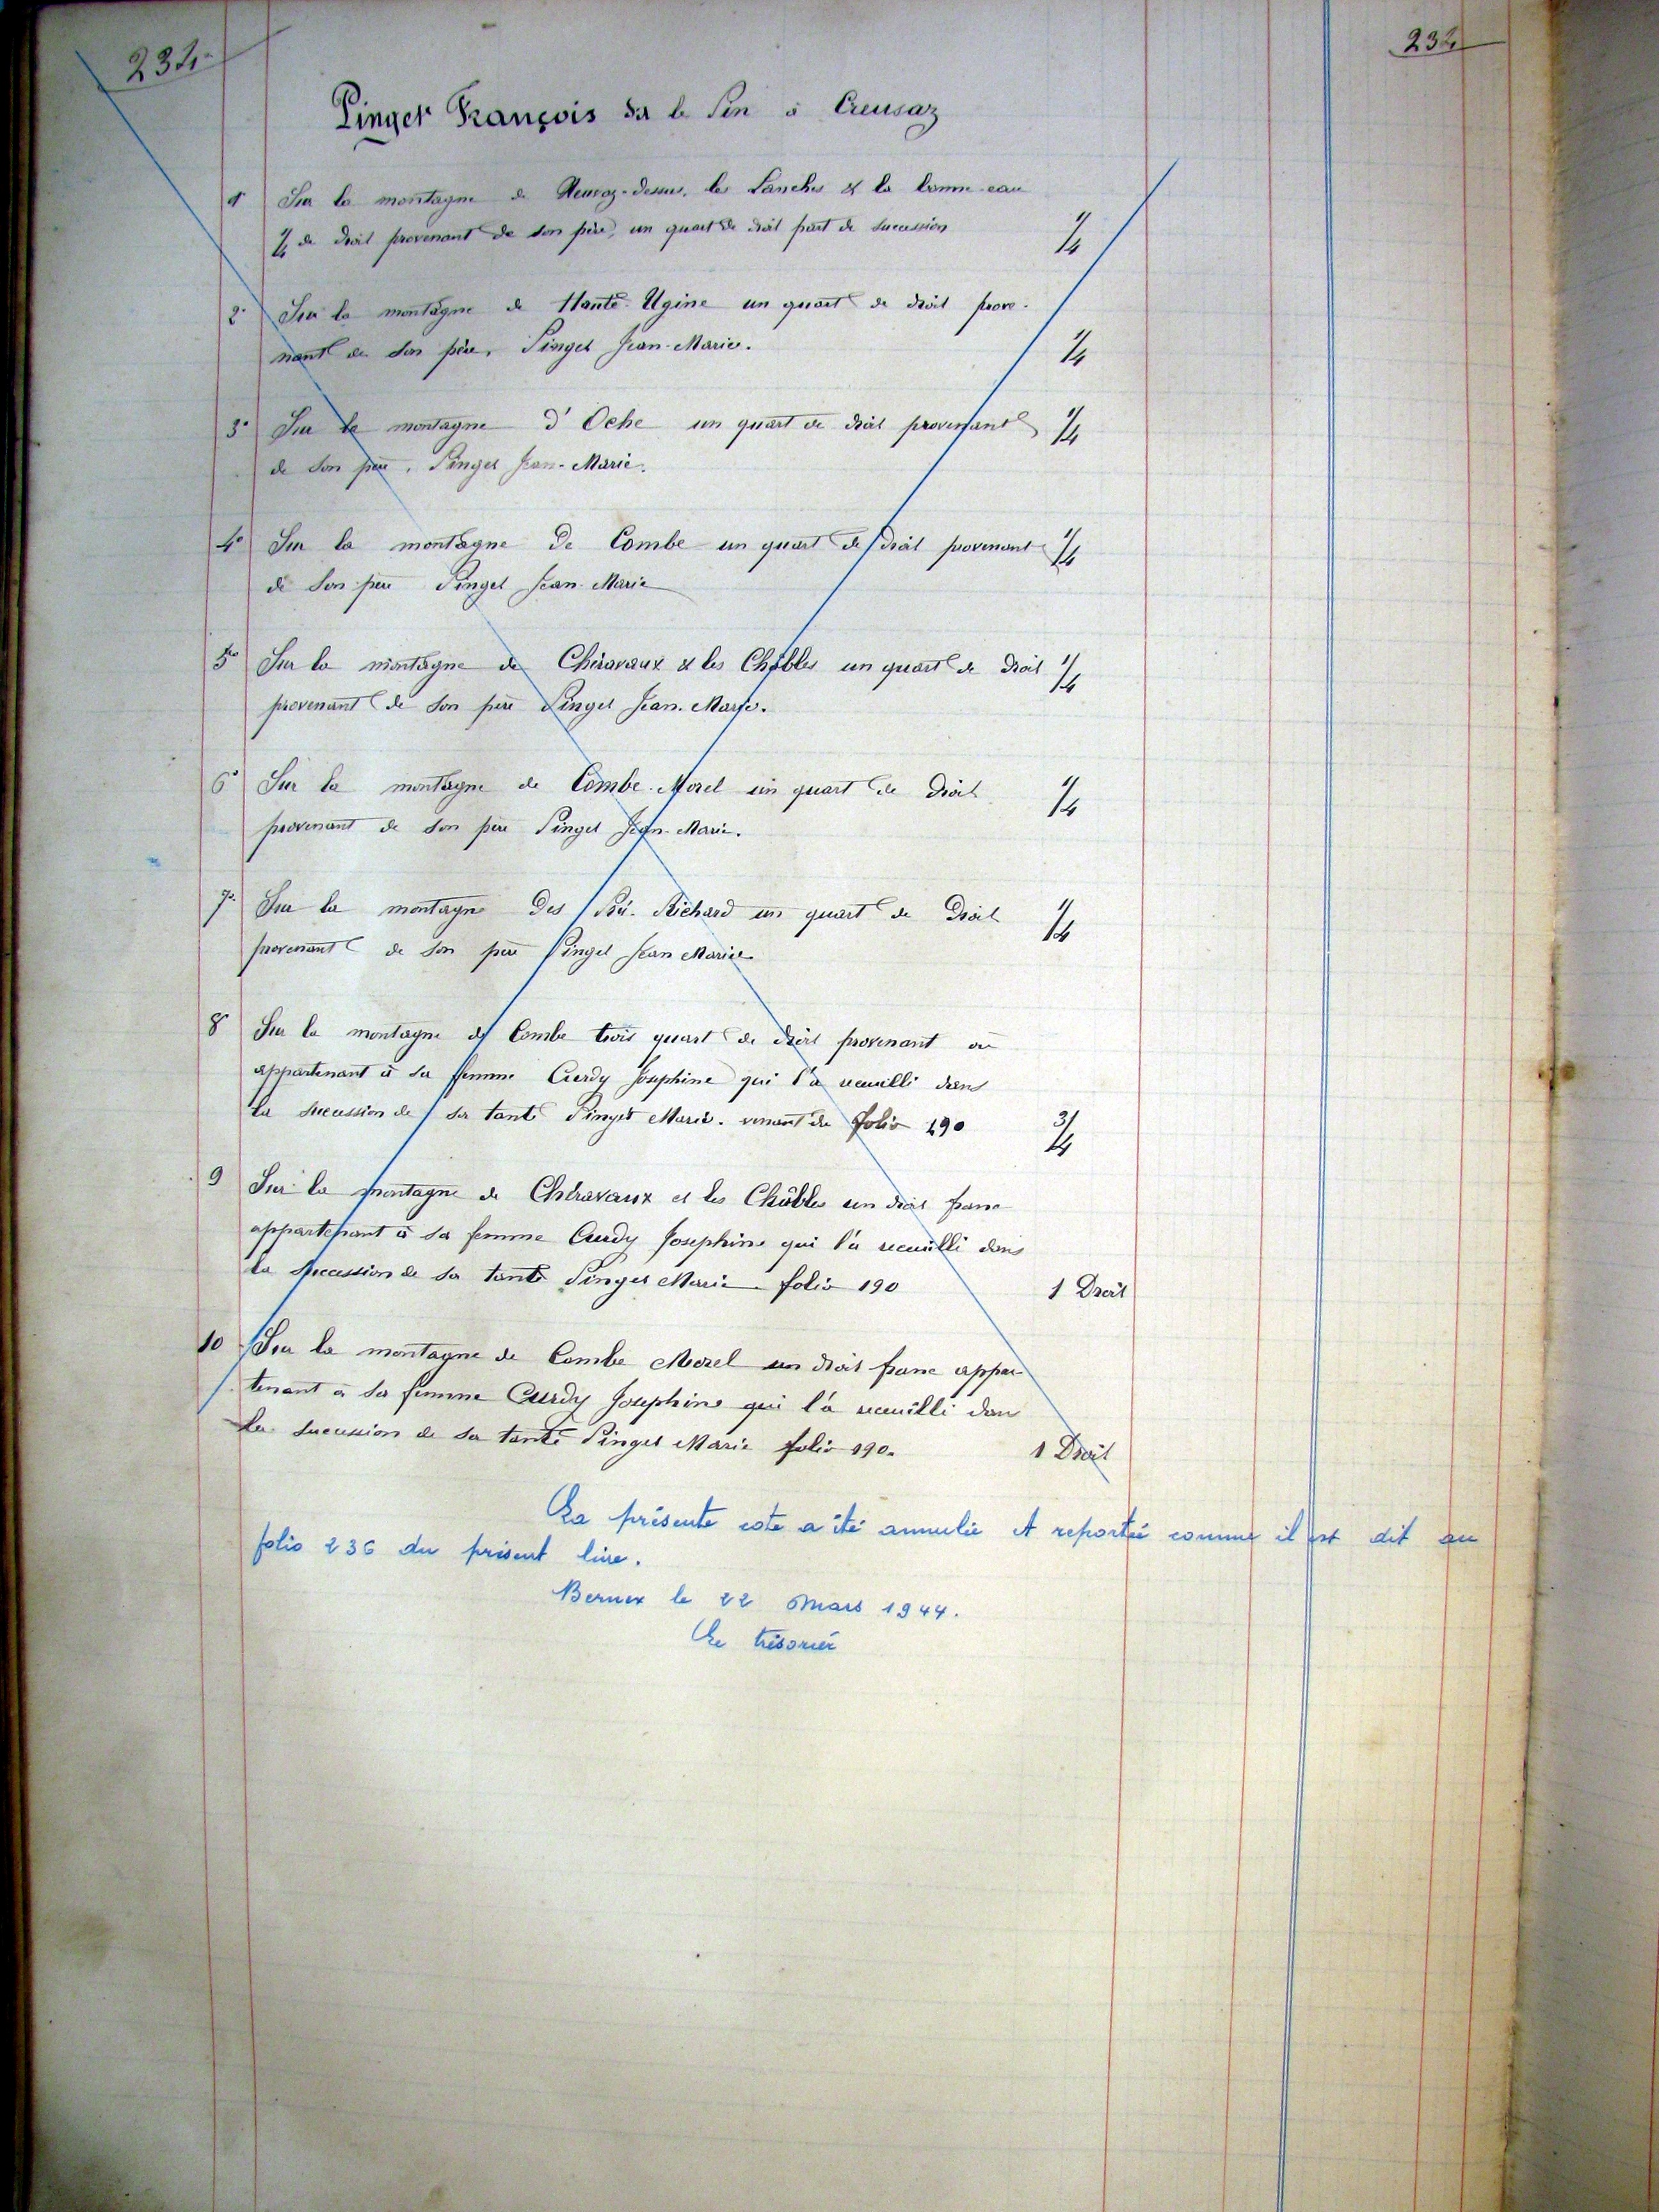 234
234
Pinget François dit le Pin à Creusaz
1° Sur la montagne de Neuvaz-dessus, les Lanches & la bonne-eau
1/4 de droit provenant de son père, un quart de droit part de sucession 1/4
2° Sur la montagne de Haute-Ugine un quart de droit prove-
nant de son père, Pinget Jean-Marie. 1/4
3° Sur la montagne d'Oche un quart de droit provenant 1/4
de son père, Pinget Jean-Marie.
4° Sur la montagne de Combe un quart de droit provenant 1/4
de son père Pinget Jean Marie
5° Sur la montagne de Chéravaux & les Châbles un quart de droit 1/4
provenant de son père Pinget Jean-Marie.
6° Sur la montagne de Combe-Morel un quart de droit 1/4
provenant de son père Pinget Jean-Marie.
7° Sur la montagne des Pré-Richard un quart de Droit 1/4
provenant de son père Pinget Jean Marie
8° Sur la montagne de Combe trois quart de droit provenant ou
appartenant à sa femme Curdy Josephine qui l'a recuilli dans
la sucession de sa tante Pinget Marie. venant du folio 190 3/4
9 Sur la montagne de Chéravaux et les Châbles un droit franc
appartenant à sa femme Curdy Josephine qui l'a recuilli dans
la succession de sa tante Pinget Marie folio 190 1 Droit
10 Sur la montagne de Combe Morel un droit franc appar-
tenant à sa femme Curdy Josephine qui l'a recuilli dans
la sucession de sa tante Pinget Marie folio 190. 1 Droit
La présente cote a été annulée et reportée comme il est dit au
folio 236 du présent livre.
Bernex le 22 Mars 1944.
Le trésorier